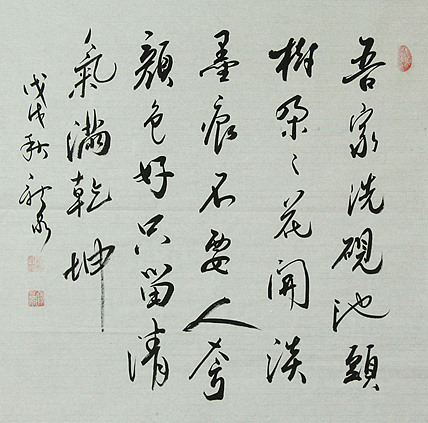 吾家洗硯池頭
樹朶〻花開淡
墨痕不要人夸
顔色好只留清
氣滿乾坤
戊戌秋